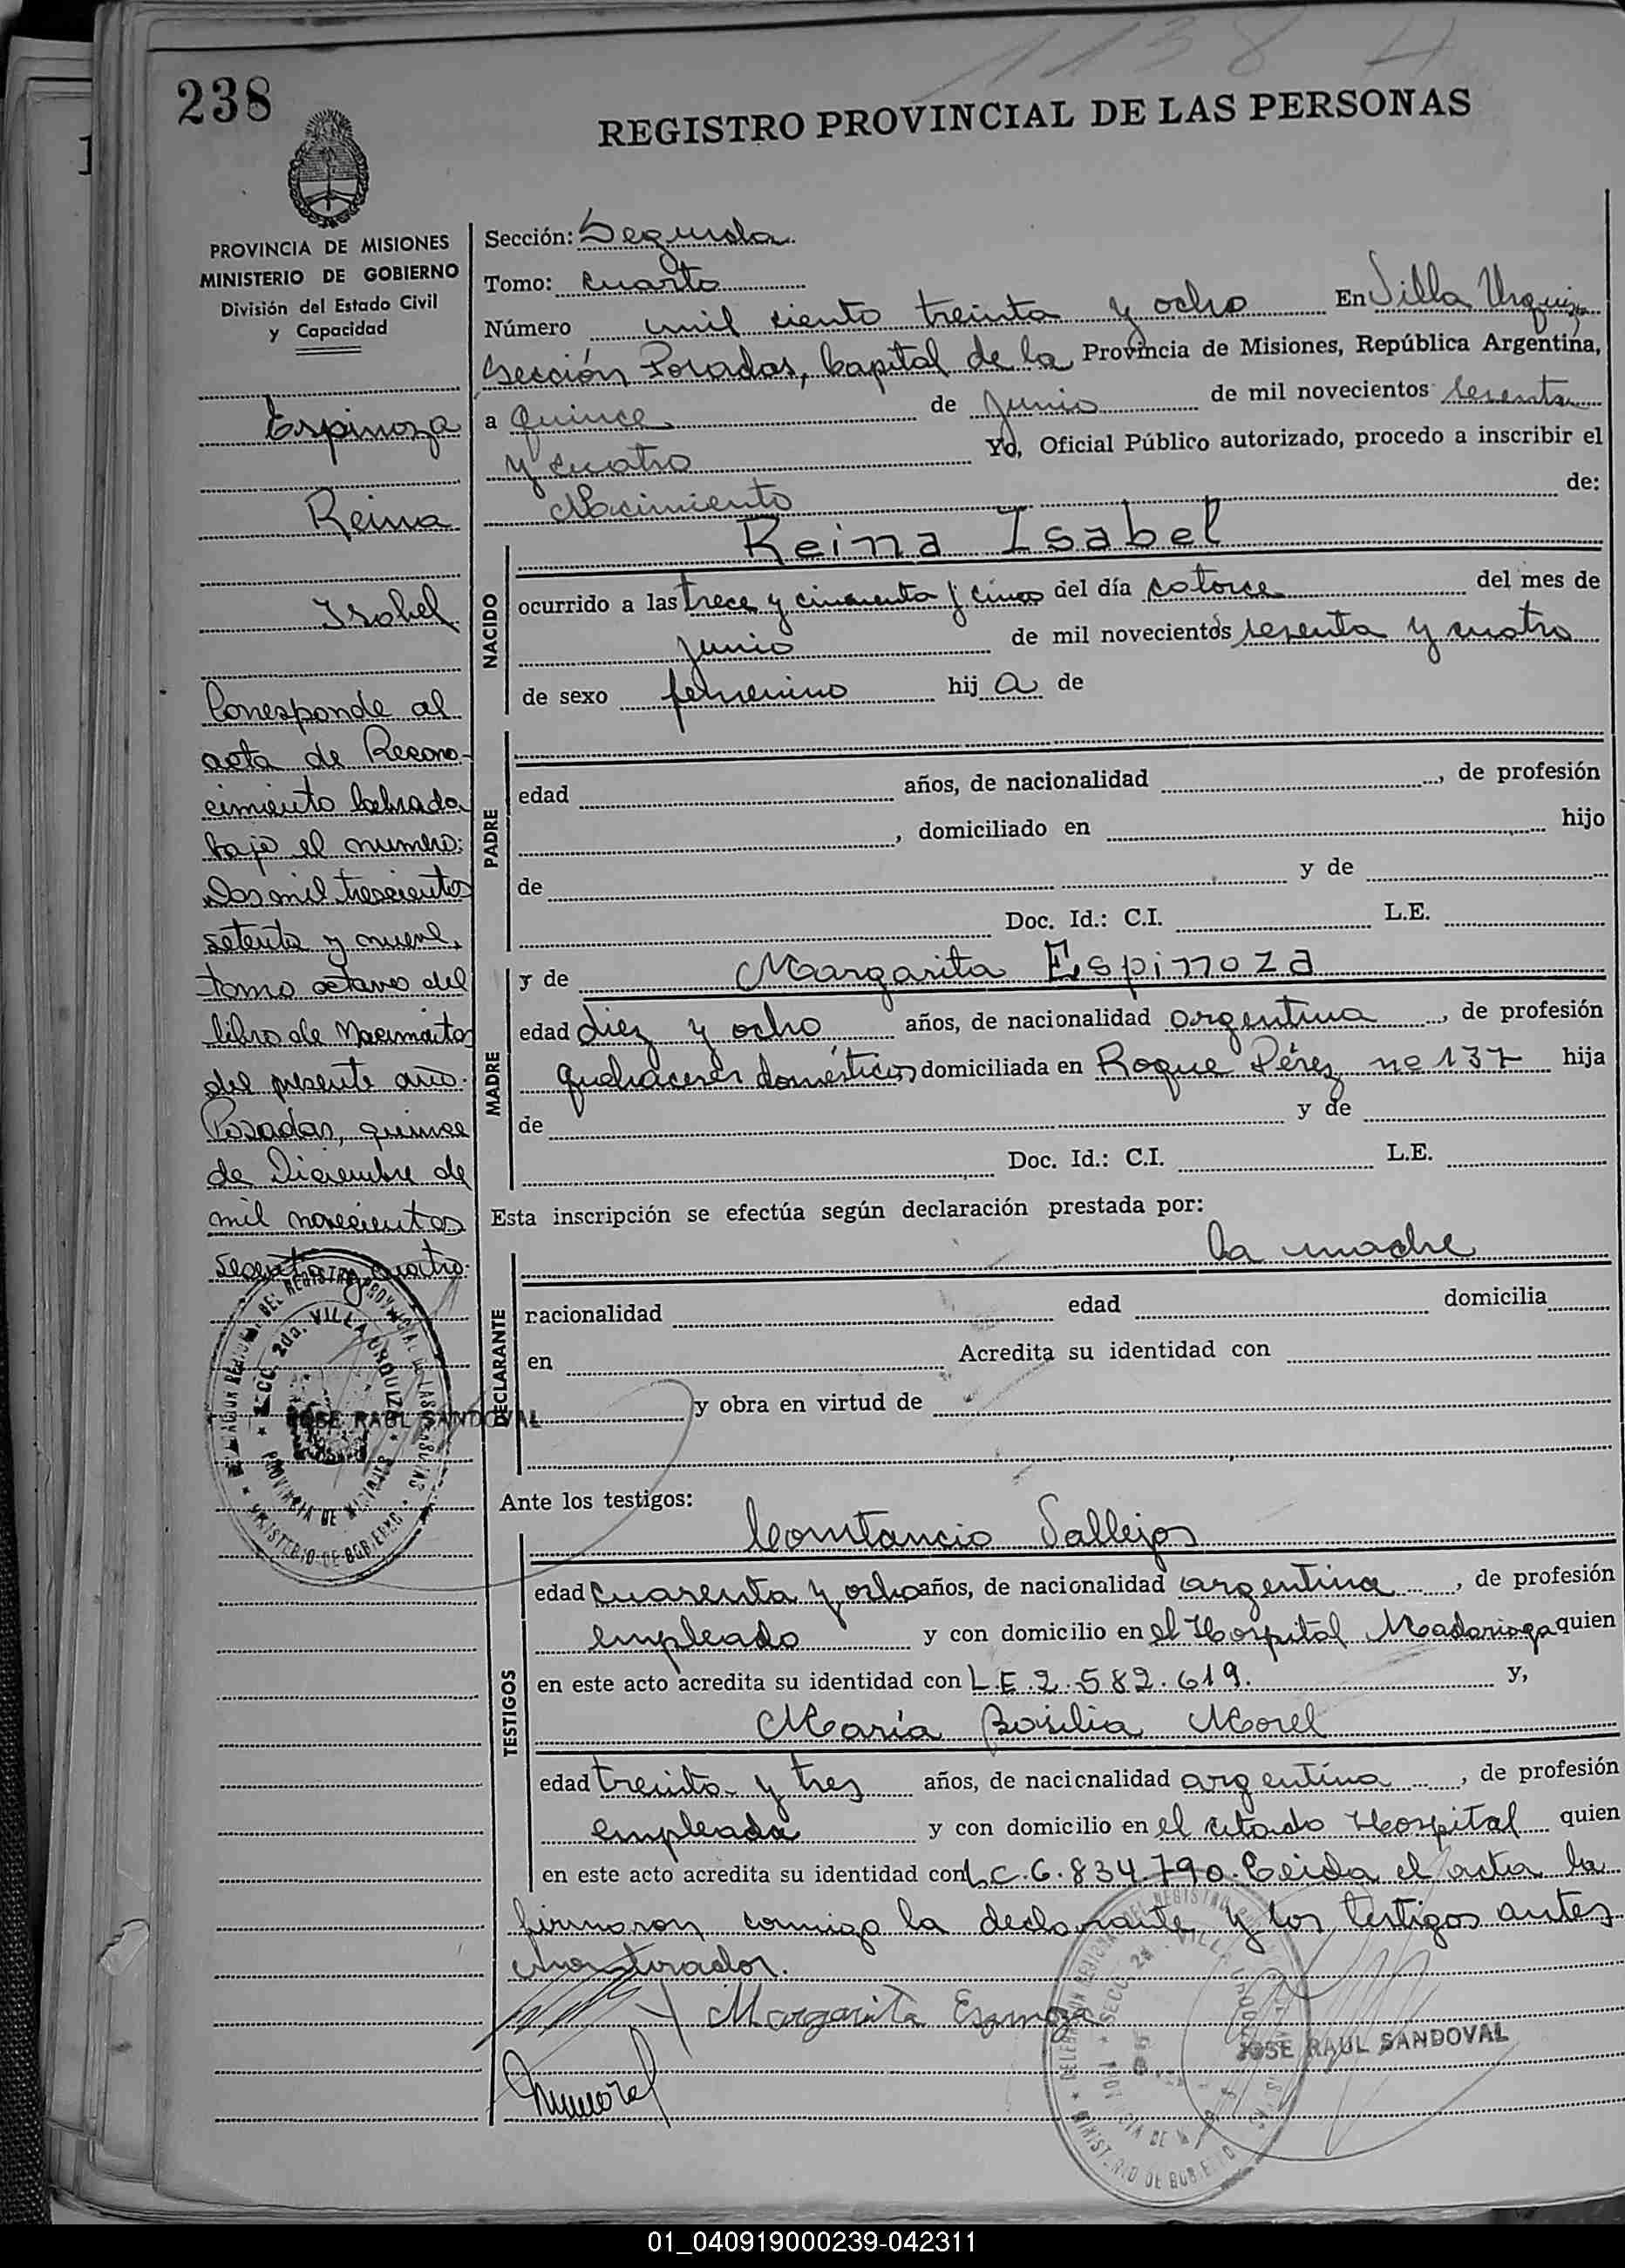 1138 H
238
REGISTRO PROVINCIAL DE LAS PERSONAS
PROVINCIA DE MISIONES
MINISTERIO DE GOBIERNO
División del Estado Civil
y Capacidad
Espinoza
Reina
Isabel
Corresponde al
acta de Recono-
cimiento labrada
bajo el numero:
Dos mil trescientos
setenta y nueve,
tomo octavo del
libro de Nacimientos
del presente año.
Posadas, quince
de Diciembre de
mil novecientos
sesenta y cuatro.
JOSE RAUL SANDOVAL
SECC. 2da. VILLA URQUIZA
PROVINCIA DE MISIONES
MINISTERIO DE GOBIERNO
Sección: Segunda
Tomo: cuarto
Número mil ciento treinta y ocho En Villa Urquiza
Sección Posadas, Capital de la Provincia de Misiones, República Argentina,
a quince de Junio de mil novecientos sesenta
y cuatro Yo, Oficial Público autorizado, procedo a inscribir el
Nacimiento de:
NACIDO
Reina Isabel
ocurrido a las trece y cincuenta y cinco del día catorce del mes de
junio de mil novecientos sesenta y cuatro
de sexo femenino hij a de
PADRE
edad años, de nacionalidad , de profesión
, domiciliado en hijo
de y de
Doc. Id.: C.I. L.E.
MADRE
y de Margarita Espinoza
edad diez y ocho años, de nacionalidad argentina , de profesión
quehaceres domésticos domiciliada en Roque Pérez nº 137 hija
de y de
Doc. Id.: C.I. L.E.
Esta inscripción se efectúa según declaración prestada por:
la madre
DECLARANTE
nacionalidad edad domicilia
en Acredita su identidad con
y obra en virtud de
Ante los testigos:
TESTIGOS
Constancio Vallejos
edad cuarenta y ocho años, de nacionalidad argentina , de profesión
empleado y con domicilio en el Hospital Madariaga quien
en este acto acredita su identidad con L.E. 2.582.619. y,
María Basilia Morel
edad treinta y tres años, de nacionalidad argentina , de profesión
empleada y con domicilio en el citado Hospital quien
en este acto acredita su identidad con L.C. 6.834.790. Leida el acta la
firmaron conmigo la declarante y los testigos antes
nombrados.
Margarita Espinoza
JOSE RAUL SANDOVAL
01_040919000239-042311